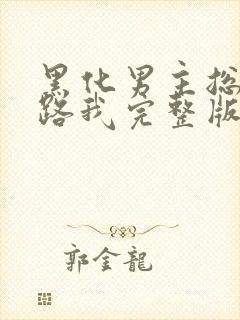 黑化男主总
路我完整版
郭金龍